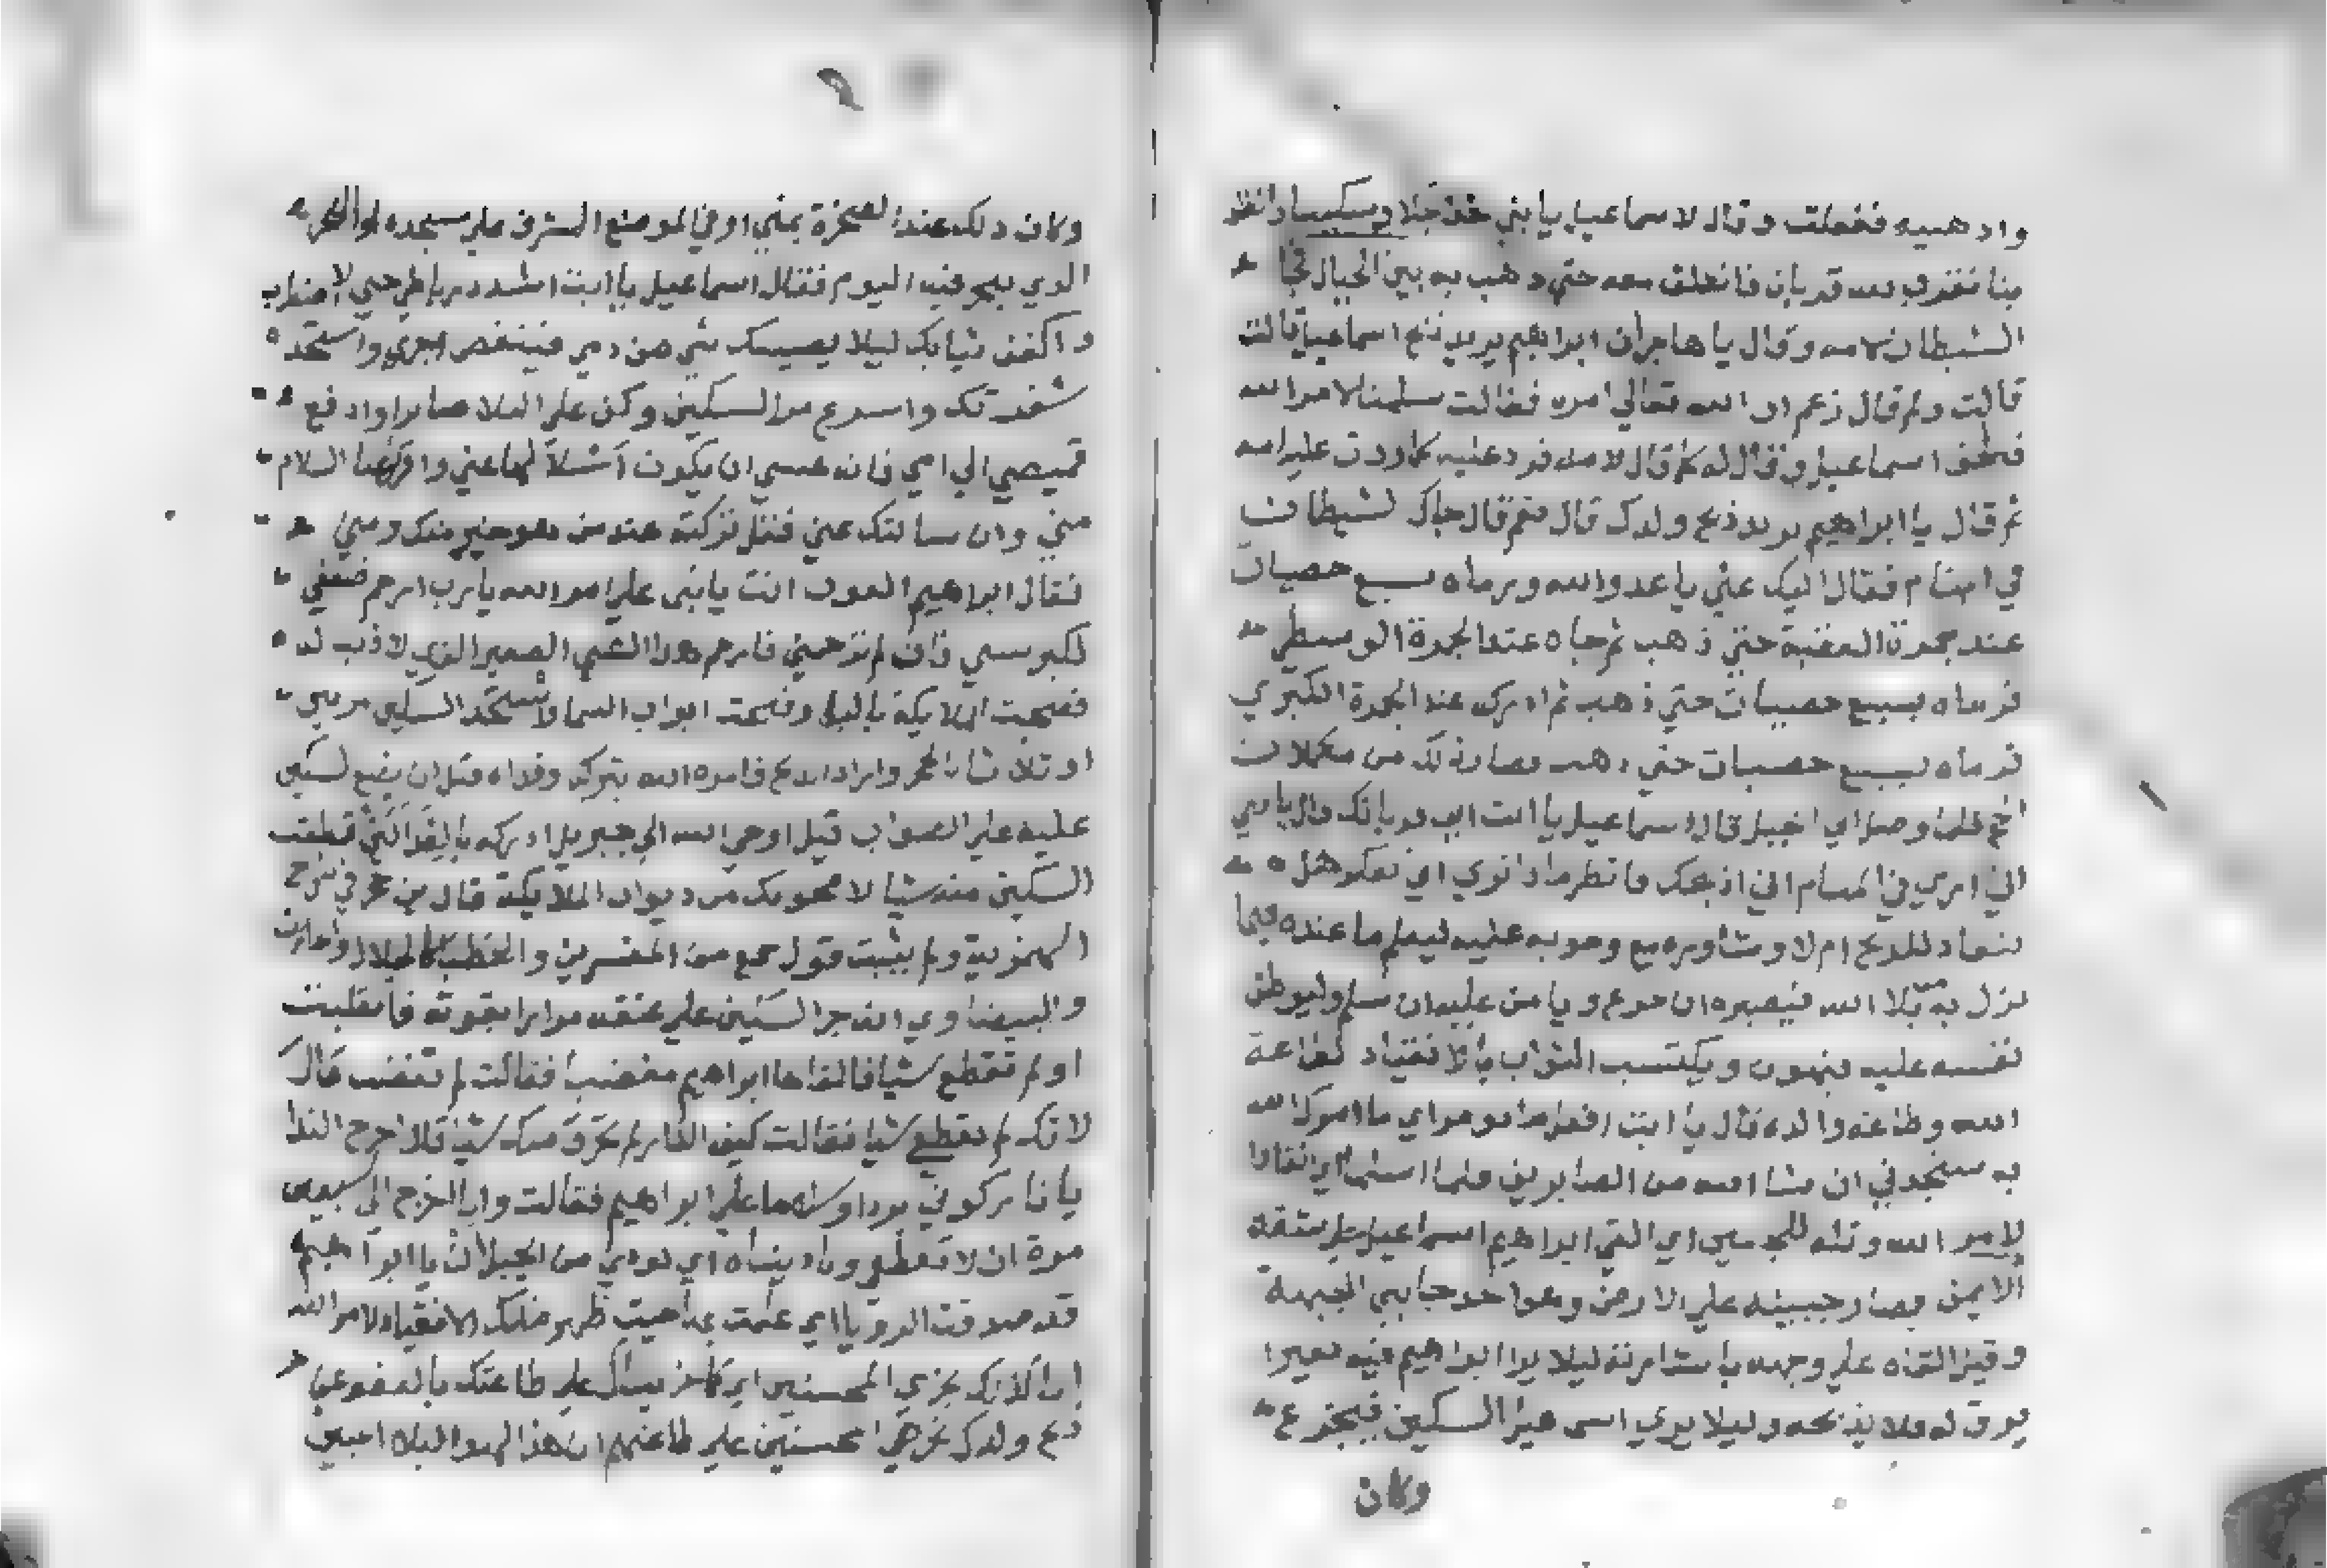 وادهنيه ففعلت وقال لاسماعيل يا بني خذ حبلا وسكينا وانطلق
بنا نقرب لله قربان فانطلق معه حتي ذهب به بين الجبال فجا
الشيطان لامه وقال يا هاجران ابراهيم يريد ذبح اسماعيل قالت
قالت ولم قال زعم ان الله تعالي امره فقالت سلمنا لامر الله
فلحق اسماعيل وقال له كما قال لامه فرد عليه كما ردت عليه امه
ثم قال يا ابراهيم تريد ذبح ولدك قال نعم قال جاك لشيطان
في المنام فقال اليك عني يا عدو الله ورماه بسبع حصيات
عند جمرة العقبة حتي ذهب ثم جاه عند الجمرة الوسطي
فرماه بسبع حصيات حتي ذهب ثم ادركه عند الجمرة الكبري
فرماه بسبع حصيات حتي ذهب فصار ذلك من
فلما وصل اي الجبل قال اسماعيل يا ابت اين قربانك قال يا بني
اني امري في المنام اني اذبحك فانظر ماذا تري اي هل
ينقاد للذبح ام لا وشاوره مع وجوبه عليه ليعلم ما عنده فيما
نزل به من بلا الله فيصبره ان جزع ويامن عليه ان سلم وليوطن
نفسه عليه فيهون ويكتسب الثواب بالانقياد لطاعة
الله وطاعة والده قال يا ابت افعل ما تومر اي ما امرك الله
به ستجدني ان شا الله من الصابرين فلما اسلما اي انقادا
لامر الله وتله للجبين اي القي ابراهيم اسماعيل علي شقه
الايمن فصار جبينه علي الارض وهو احد جانبي الجبهة
وقيل القاه علي وجهه باشارته ليلا يرا ابراهيم فيه تغيرا
يرق له فلا يذبحه وليلا يري اسمعيل السكين فيجزع
وكان
وكان ذلك عند الصخرة بمني او في الموضع المشرف علي مسجده او المنحر
الذي ينحر فيه اليوم فقال اسماعيل يا ابت اشدد رباطي حتي لا اضطرب
واكفف ثيابك ليلا يصيبك شي من دمي فينقص اجري واستحد
شفرتك واسرع مر السكين وكن علي البلا صابرا وادفع
قميصي الي امي فانه عسي ان يكون اسلا لها عني واقرئها السلام
مني وان سالتك عني فقل تركته عند من هو خير منك ومني
فقال ابراهيم العون انت يا بني علي امر الله يا رب ارحم ضعفي
لكبر سني فان لم ترحمني فارحم هذا الصبي الصغير الذي لا ذنب له
فضجت الملايكة بالبكا وفتحت ابواب السما واستحد السكين مرتين
او ثلاثا بالحجر واراد الذبح فامره الله بتركه وفداه قبل ان يضع لسكين
عليه علي الصواب قيل اوحي الله الي جبريل ادركه بالفدا لئن قطعت
السكين منه شيا لا محونك من ديوان الملايكة قال بن حجر في شرح
الهمزية ولم يثبت قول جمع من المفسرين والخطبا كالجلال
والبيضاوي انه جر السكين علي عنقه مرارا بقوته فانقلبت
او لم تقطع شيا فالقاها ابراهيم مغضبا فقالت لم تغضب قال
لانك لم تقطع شيا فقالت كيف النار لم تحرق منك شيا قال خرج الندا
يا نار كوني بردا وسلاما علي ابراهيم فقالت وانا خرج الي سبعين
مرة ان لا تقطعي وناديناه اي نودي من الجبل ان يا ابراهيم
قد صدقت الرويا اي عملت بها حيث ظهر منك الانقياد لامر الله
انا كذلك نجزي المحسنين اي كما جزيناك علي طاعتك بالعفو عن
ذبح ولدك نجزي المحسنين علي طاعتهم ان هذا لهو البلا المبين